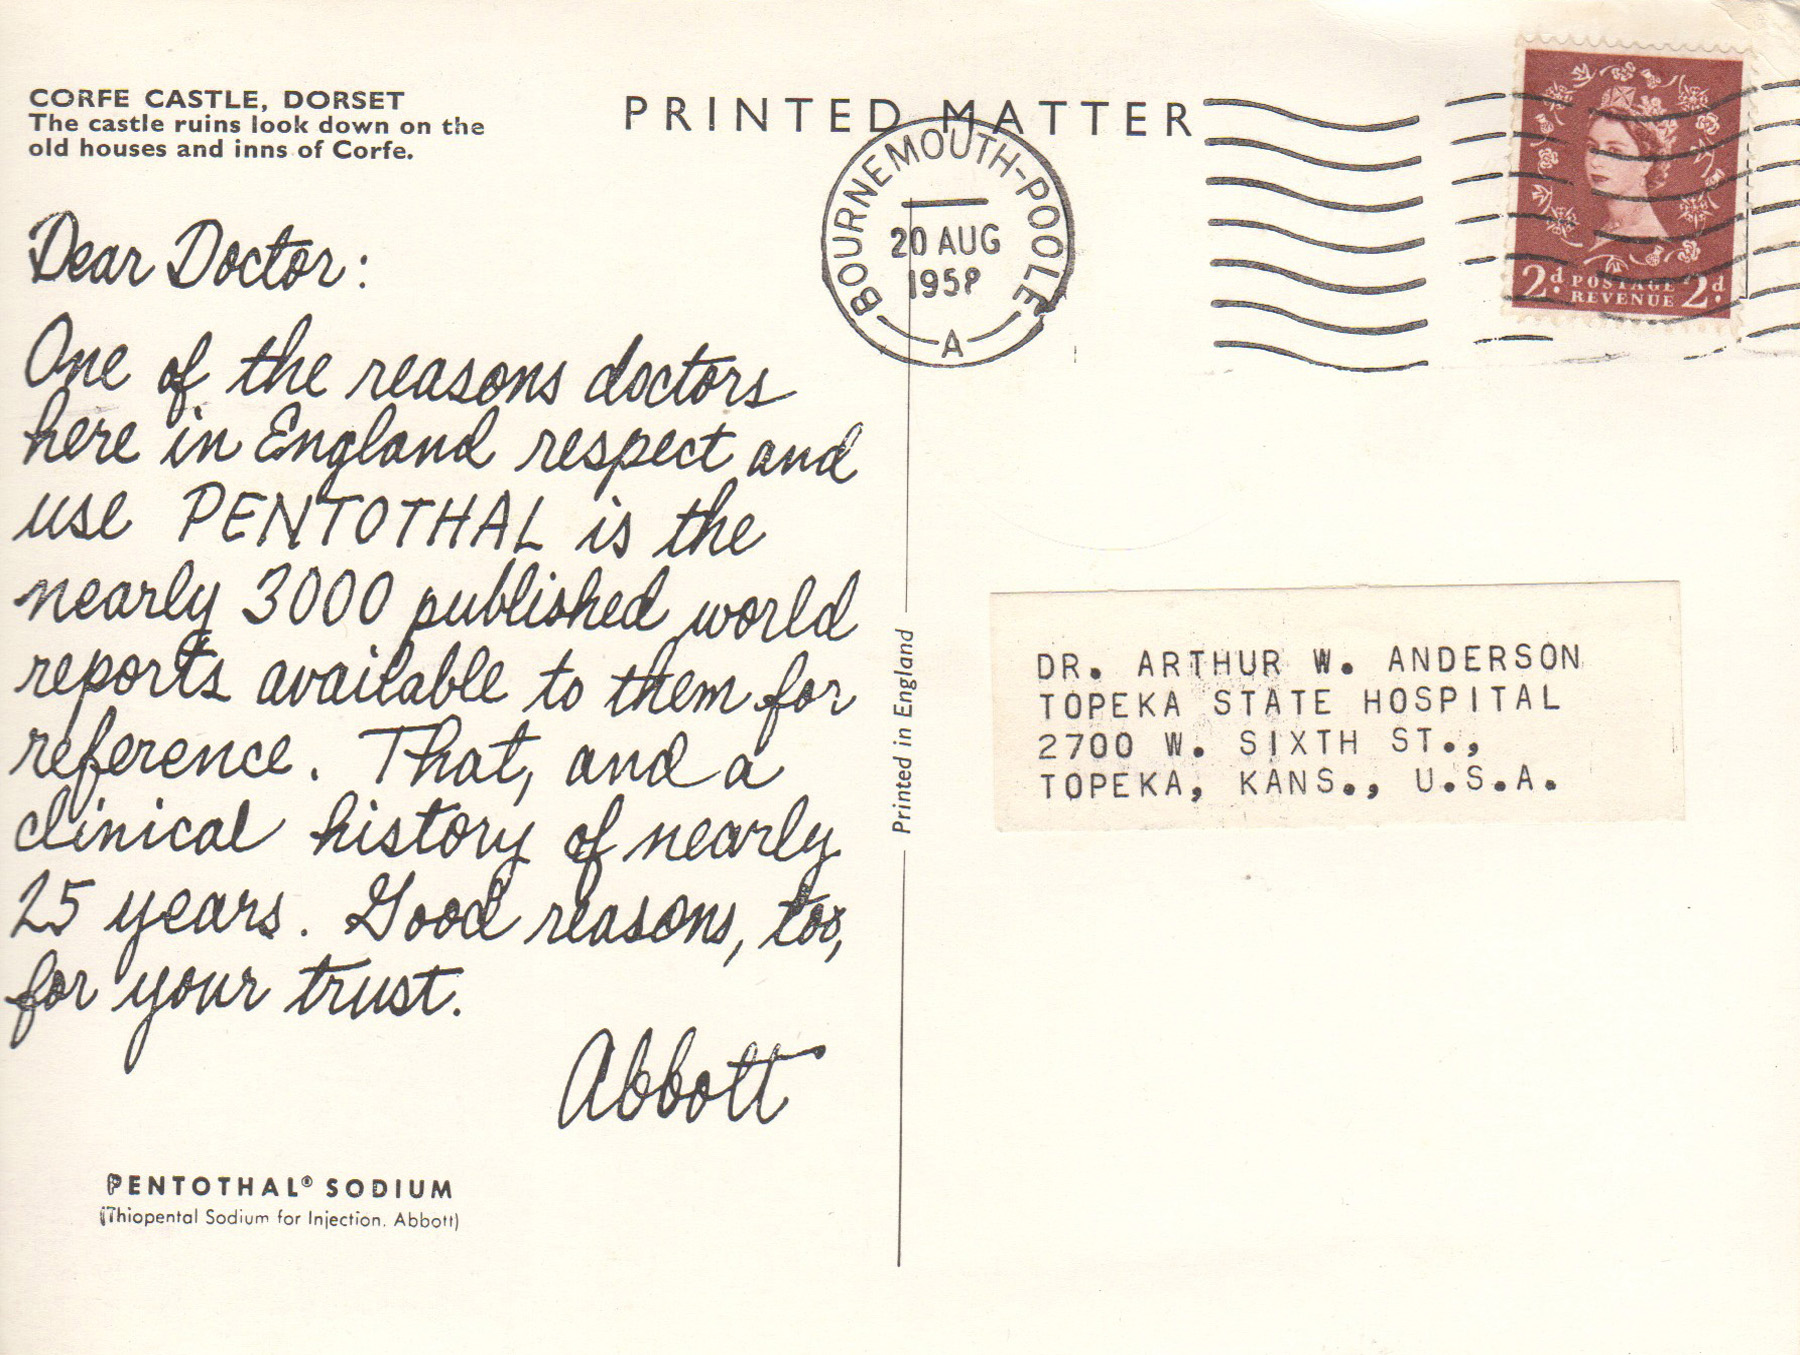 CORFE CASTLE, DORSET
The castle ruins look down on the
old houses and inns of Corfe.
PRINTED MATTER
BOURNEMOUTH-POOLE
20 AUG
1958
A
2d. POSTAGE 2d.
REVENUE
Dear Doctor:
One of the reasons doctors
here in England respect and
use PENTOTHAL is the
nearly 3000 published world
reports available to them for
reference. That, and a
clinical history of nearly
25 years. Good reasons, too,
for your trust.
Abbott
PENTOTHAL® SODIUM
(Thiopental Sodium for Injection. Abbott)
Printed in England
DR. ARTHUR W. ANDERSON
TOPEKA STATE HOSPITAL
2700 W. SIXTH ST.,
TOPEKA, KANS., U.S.A.